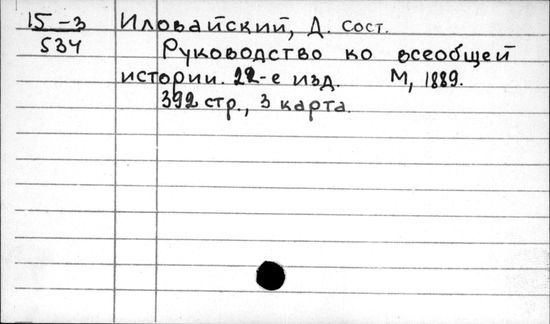 15-3
534
Иловайский, Д. сост.
Руководство ко всеобщей
истории. 22-е изд. М, 1889.
392 стр., 3 карта.